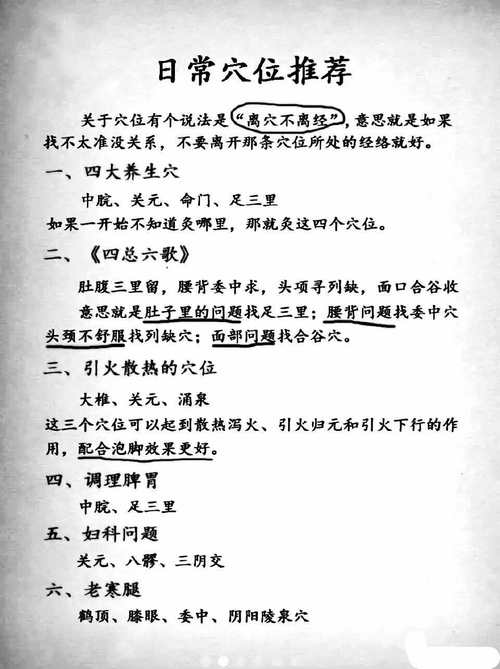 日常穴位推荐
关于穴位有个说法是“离穴不离经”,意思就是如果
找不太准没关系,不要离开那条穴位所处的经络就好。
一、四大养生穴
中脘、关元、命门、足三里
如果一开始不知道灸哪里,那就灸这四个穴位。
二、《四总六歌》
肚腹三里留,腰背委中求,头项寻列缺,面口合谷收
意思就是肚子里的问题找足三里;腰背问题找委中穴
头颈不舒服找列缺穴;面部问题找合谷穴。
三、引火散热的穴位
大椎、关元、涌泉
这三个穴位可以起到散热泻火、引火归元和引火下行的作
用,配合泡脚效果更好。
四、调理脾胃
中脘、足三里
五、妇科问题
关元、八髎、三阴交
六、老寒腿
鹤顶、膝眼、委中、阴阳陵泉穴